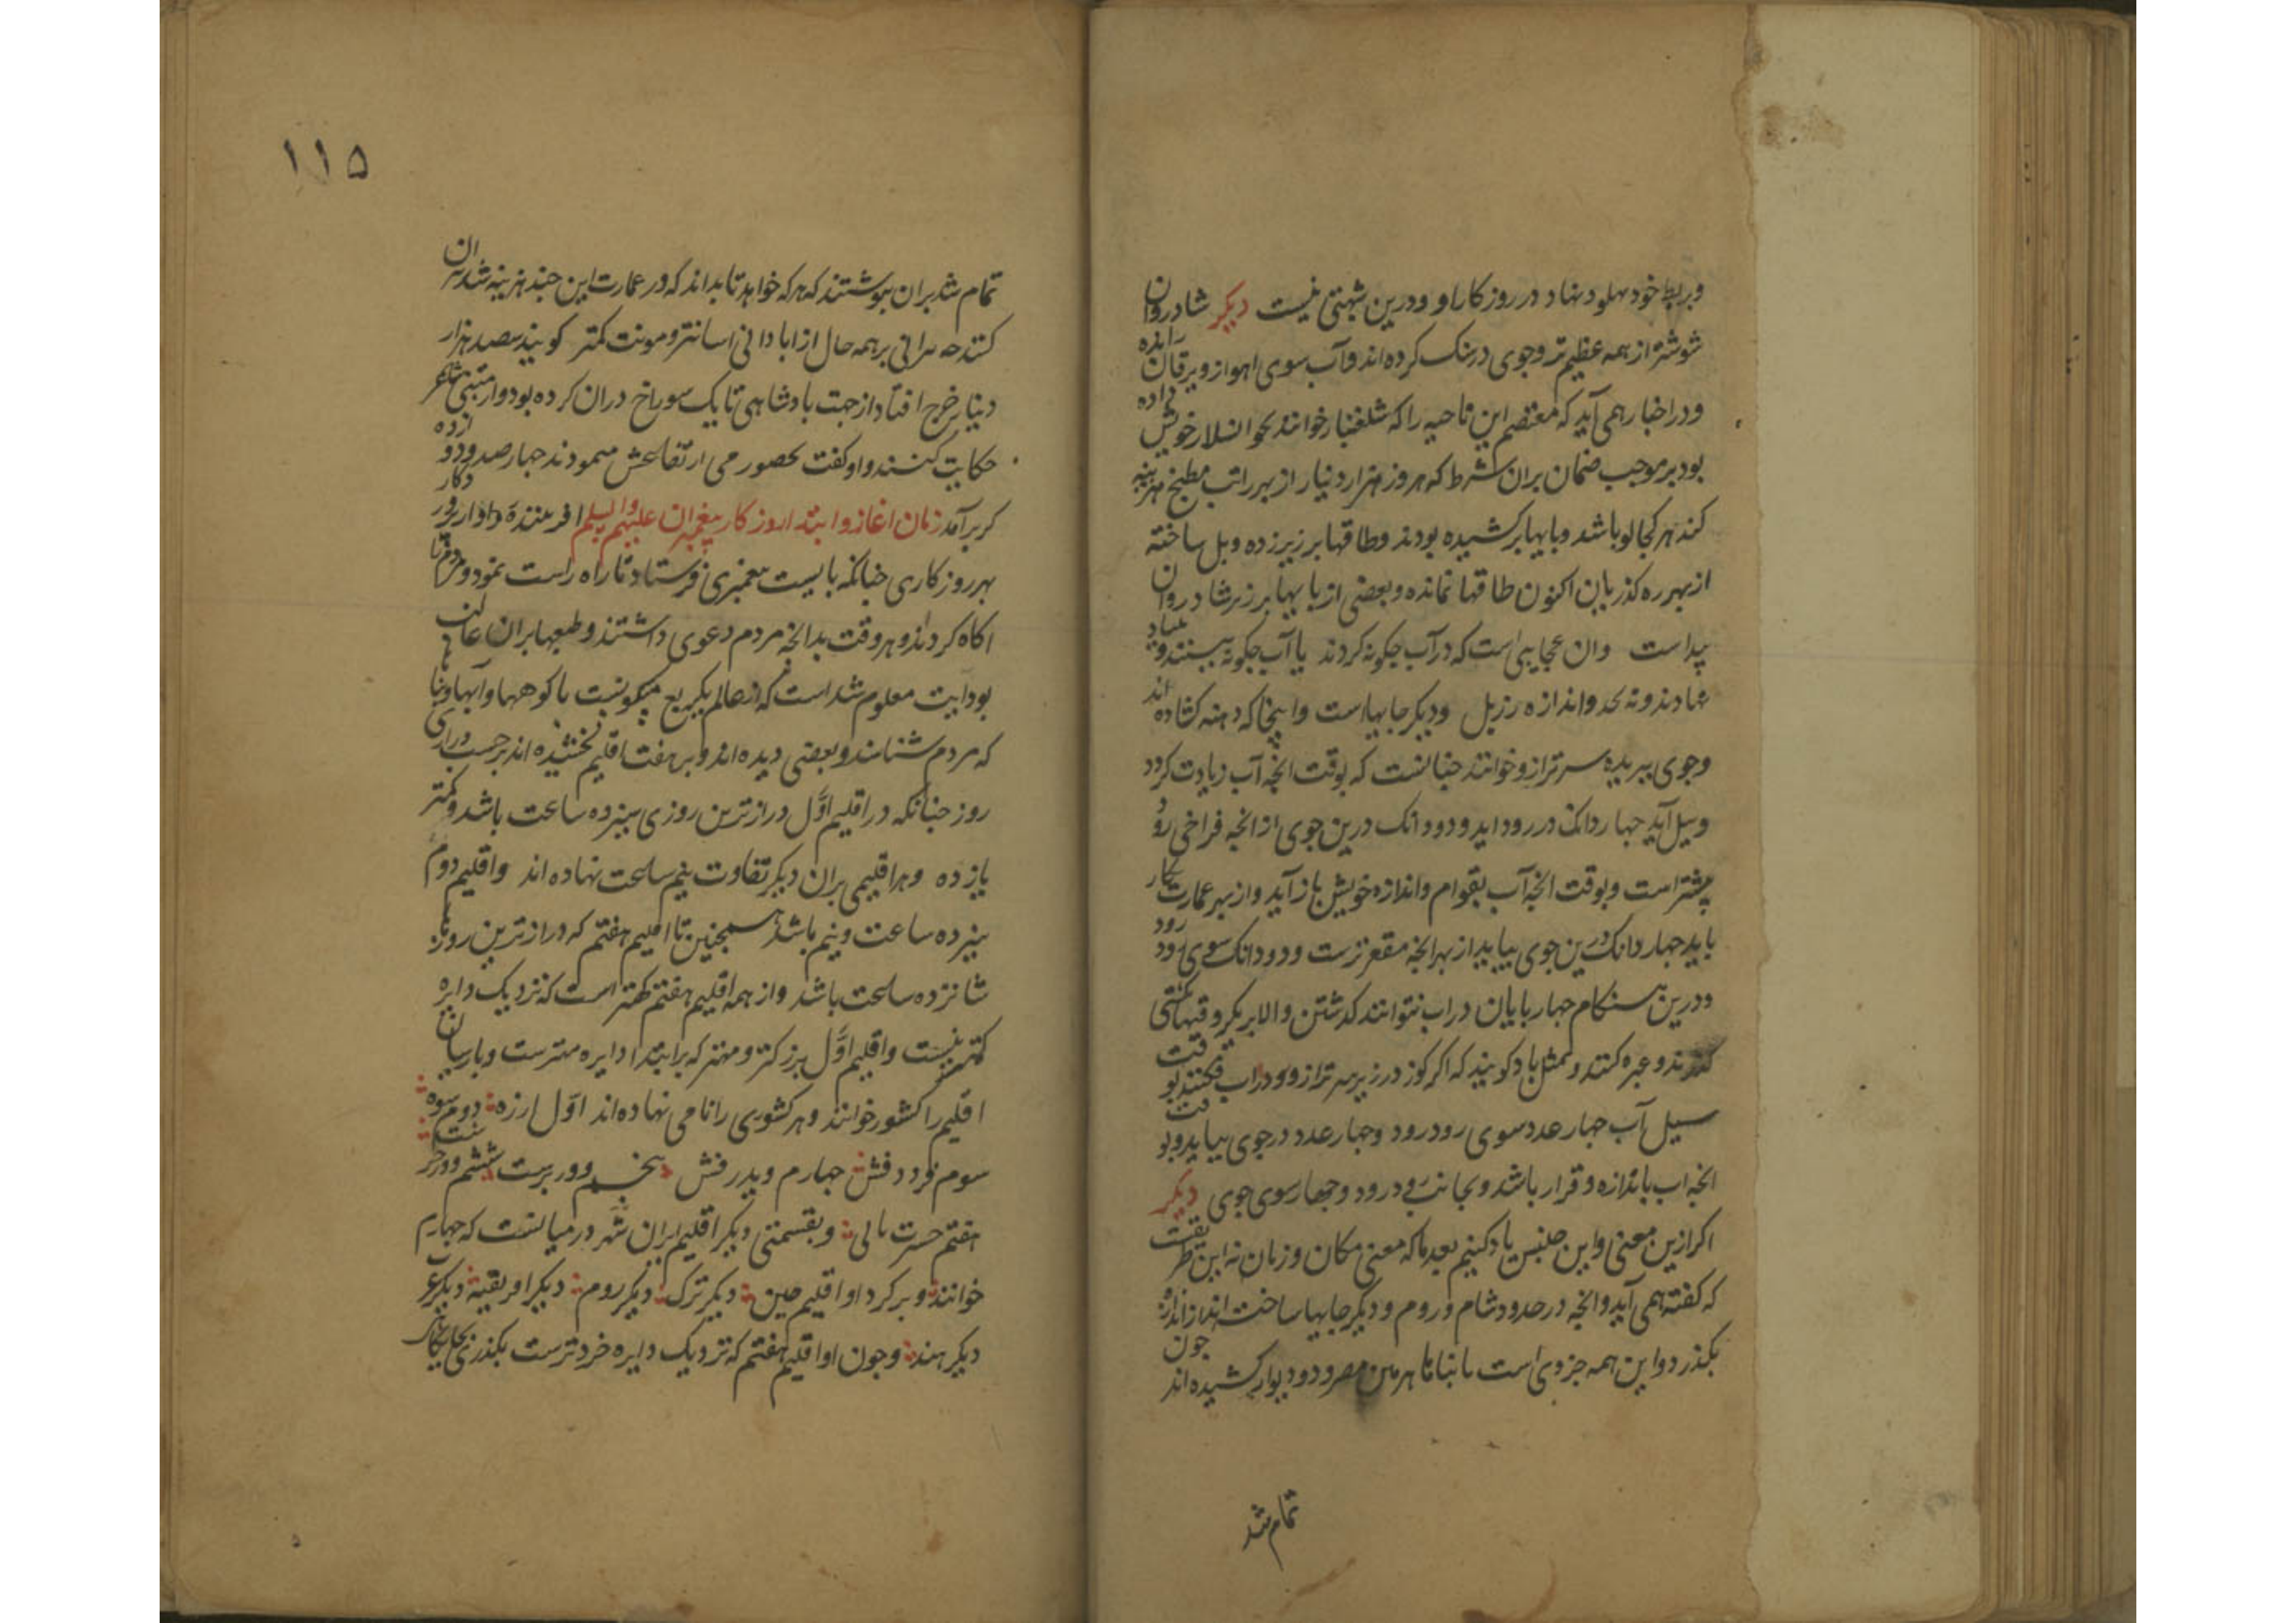 وبر پهلو خود بنهاد در روزکار او و درین شبهتی نیست دیکر شادروان
شوشتر از همه عظیم تر وجوی در سنک کرده اند و آب سوی اهواز و برقان رانده
ودر اخبار همی آید که معتصم این ناحیه را که خوانند خویش داده
بود بر موجب ضمان بران شرط که هر روز هزار دینار از بهر راتب مطبخ هزینه
کند هر کجا او باشد و پایها بر کشیده بودند وطاقها بر زیر زده وپل ساخته
از بهر ره کذریان اکنون طاقها نمانده وبعضی از پایها بر زیر شادروان
پیداست وان عجایبی است که در آب جکونه کردند یا آب جکونه ببستند و بنیاد
نهادند و نه بحد واندازه پل ودیکر جایهاست واینجا که دهنه کشاده اند
وجوی ببریده سر ترازو خوانند جنانست که بوقت انجه آب زیادت کردد
وسیل آید جهار دانک در رود اید و دو دانک درین جوی از انجه فراخی رود
بیشتر است وبوقت انجه آب بقوام واندازه خویش باز آید واز بهر عمارت بکار
باید جهار دانک درین جوی بیاید از بهر انجه مقعرترست و دو دانک سوی رود رود
ودرین هنکام جهار پایان در اب نتوانند کذشتن والا بر یکر وقتها بکشتی
کذرند و عبره کنند و بمثل یاد کویند که اکر کوز در زیر سر ترازو در اب فکنند بوقت
سیل آب جهار عدد سوی رود رود وجهار عدد در جوی بیاید وبوقت
انجه اب باندازه وقرار باشد دو بجانب رود رود وجهار سوی جوی دیکر
اکر ازین معنی واین جنس یاد کنیم بعد ما که معنی مکان وزمان نه این طریقت
که کفته همی آید وانجه در حدود شام وروم ودیکر جایها ساخته اند از اندازه
بکذرد واین همه جزوی است با بنا ها هرمین مصر و دو دیوار کشیده اند جون
تمام شد
۱۱۵
تمام شد بران بنوشتند که هرکه خواهد تا بداند که در عمارت این جند هزینه شد بیران
کنند جه ویرانی بر همه حال از ابادانی اسانتر و مونت کمتر کویند سیصد هزار
دینار خرج افتاد از جهت پادشاهی تا یک سوراخ دران کرده بود و از متنبی شاعر
حکایت کنند و او کفت بحضور می ارتفاعش میمودند جهار صد و دوازده
کر برآمد زمان اغاز وابتداء روزکار پیغمبران علیهم والسلم افریننده دادار کردکار
بهر روزکاری جنانکه بایست پیغمبری فرستاد تا راه راست نمود ومردم را
اکاه کردند و هر وقت بدانجه مردم دعوی داشتند وطبعها بران غالب
بودایت معلوم شد است که از عالم یک ربع مسکونست با کوهها وآبها وبناها
که مردم شناسند وبعضی دیده اند وبر هفت اقلیم بخشیده اند بر حسب درازی
روز جنانکه در اقلیم اوّل درازترین روزی سیزده ساعت باشد وکمتر
یازده وهر اقلیمی بران دیکر تفاوت نیم ساعت نهاده اند واقلیم دوم
سیزده ساعت ونیم باشد همجنین تا اقلیم هفتم که درازترین روزها
شانزده ساعت باشد واز همه اقلیم هفتم کهتر است که نزدیک دایره
کهترینست واقلیم اوّل بزرکتر ومهتر که بر ابتدا دایره مهترست وپارسیان
اقلیم را کشور خوانند وهر کشوری را نامی نهاده اند اوّل ارزه دوم سوه
سوم فرددفش جهارم ویدرفش پنجم ووربرست ششم وورجرست
هفتم خسرت مالی وبقسمتی دیکر اقلیم ایران شهر در میانست که جهارم
خوانند وبر کرد او اقلیم صین دیکر ترک دیکر روم دیکر افریقیة دیکر عرب
دیکر هند وجون او اقلیم هفتم که نزدیک دایره خردترست بکذری